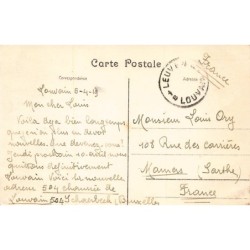 Carte Postale
Correspondance
Adresse
France
LEUVEN
LOUVAIN
Louvain 5-4-19
Mon cher Louis
Voilà déjà bien longtemps
que je n'ai plus eu de vos
nouvelles
Jeudi prochain 10 avril nous
quittons définitivement
Louvain Voici la nouvelle
adresse 504 chaussée de
Louvain 504 Schaerbeek Bruxelles
Monsieur Louis Ory
108 Rue des carrières
Mamers Sarthe)
France